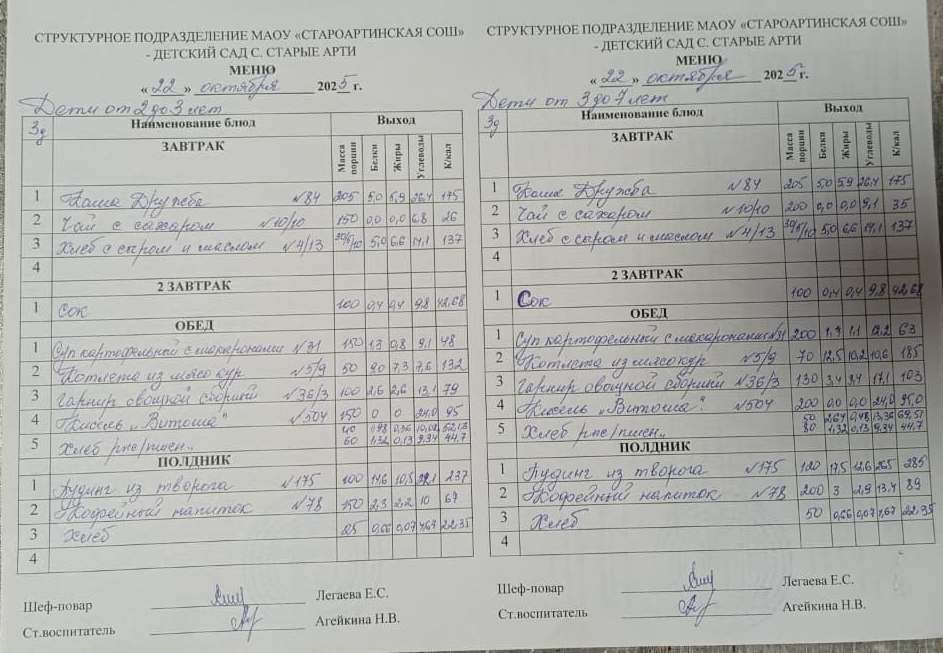 СТРУКТУРНОЕ ПОДРАЗДЕЛЕНИЕ МАОУ «СТАРОАРТИНСКАЯ СОШ»
- ДЕТСКИЙ САД С. СТАРЫЕ АРТИ
МЕНЮ
« 22 » октября 2025 г.
Дети от 2 до 3 лет
3д Наименование блюд Выход
ЗАВТРАК Масса порции Белки Жиры Углеводы К/кал
1 Каша Дружба №84 205 5,0 5,9 26,4 175
2 Чай с сахаром №10/10 150 0,0 0,0 6,8 26
3 Хлеб с сыром и маслом №4/13 30/5/10 5,0 6,6 14,1 137
4
2 ЗАВТРАК
1 Сок 100 0,4 0,4 9,8 42,68
ОБЕД
1 Суп картофельный с макаронами №31 150 1,3 0,8 9,1 48
2 Котлета из мясо кур №5/9 50 9,0 7,3 7,6 132
3 Гарнир овощной сборный №36/3 100 2,6 2,6 13,1 79
4 Кисель „Витоша" №504 150 0 0 24,0 95
5 Хлеб рже/пшен.. 40 1,98 0,36 10,02 52,13
60 1,32 0,13 9,34 44,7
ПОЛДНИК
1 Пудинг из творога №175 100 14,6 10,5 237
2 Кофейный напиток №78 150 2,3 2,2 10 67
3 Хлеб 25 0,66 0,07 4,67 22,35
4
Шеф-повар Легаева Е.С.
Ст.воспитатель Агейкина Н.В.
СТРУКТУРНОЕ ПОДРАЗДЕЛЕНИЕ МАОУ «СТАРОАРТИНСКАЯ СОШ»
- ДЕТСКИЙ САД С. СТАРЫЕ АРТИ
МЕНЮ
« 22 » октября 2025 г.
Дети от 3 до 7 лет
3д Наименование блюд Выход
ЗАВТРАК Масса порции Белки Жиры Углеводы К/кал
1 Каша Дружба №84 205 5,0 5,9 26,4 175
2 Чай с сахаром №10/10 200 0,0 0,0 9,1 35
3 Хлеб с сыром и маслом №4/13 30/5/10 5,0 6,6 14,1 137
4
2 ЗАВТРАК
1 Сок 100 0,4 0,4 9,8 42,68
ОБЕД
1 Суп картофельный с макаронами №31 200 1,7 1,1 12,2 63
2 Котлета из мясо кур №5/9 70 12,5 10,2 10,6 185
3 Гарнир овощной сборный №36/3 130 3,4 3,4 17,1 103
4 Кисель „Витоша". №504 200 0,0 0,0 24,0 95,0
5 Хлеб рже/пшен.. 50 2,64 0,48 13,36 69,51
80 1,32 0,13 9,34 44,7
ПОЛДНИК
1 Пудинг из творога №175 120 17,5 12,6 26,5 285
2 Кофейный напиток №78 200 3 2,9 13,4 89
3 Хлеб 50 0,66 0,07 4,67 22,35
4
Шеф-повар Легаева Е.С.
Ст.воспитатель Агейкина Н.В.